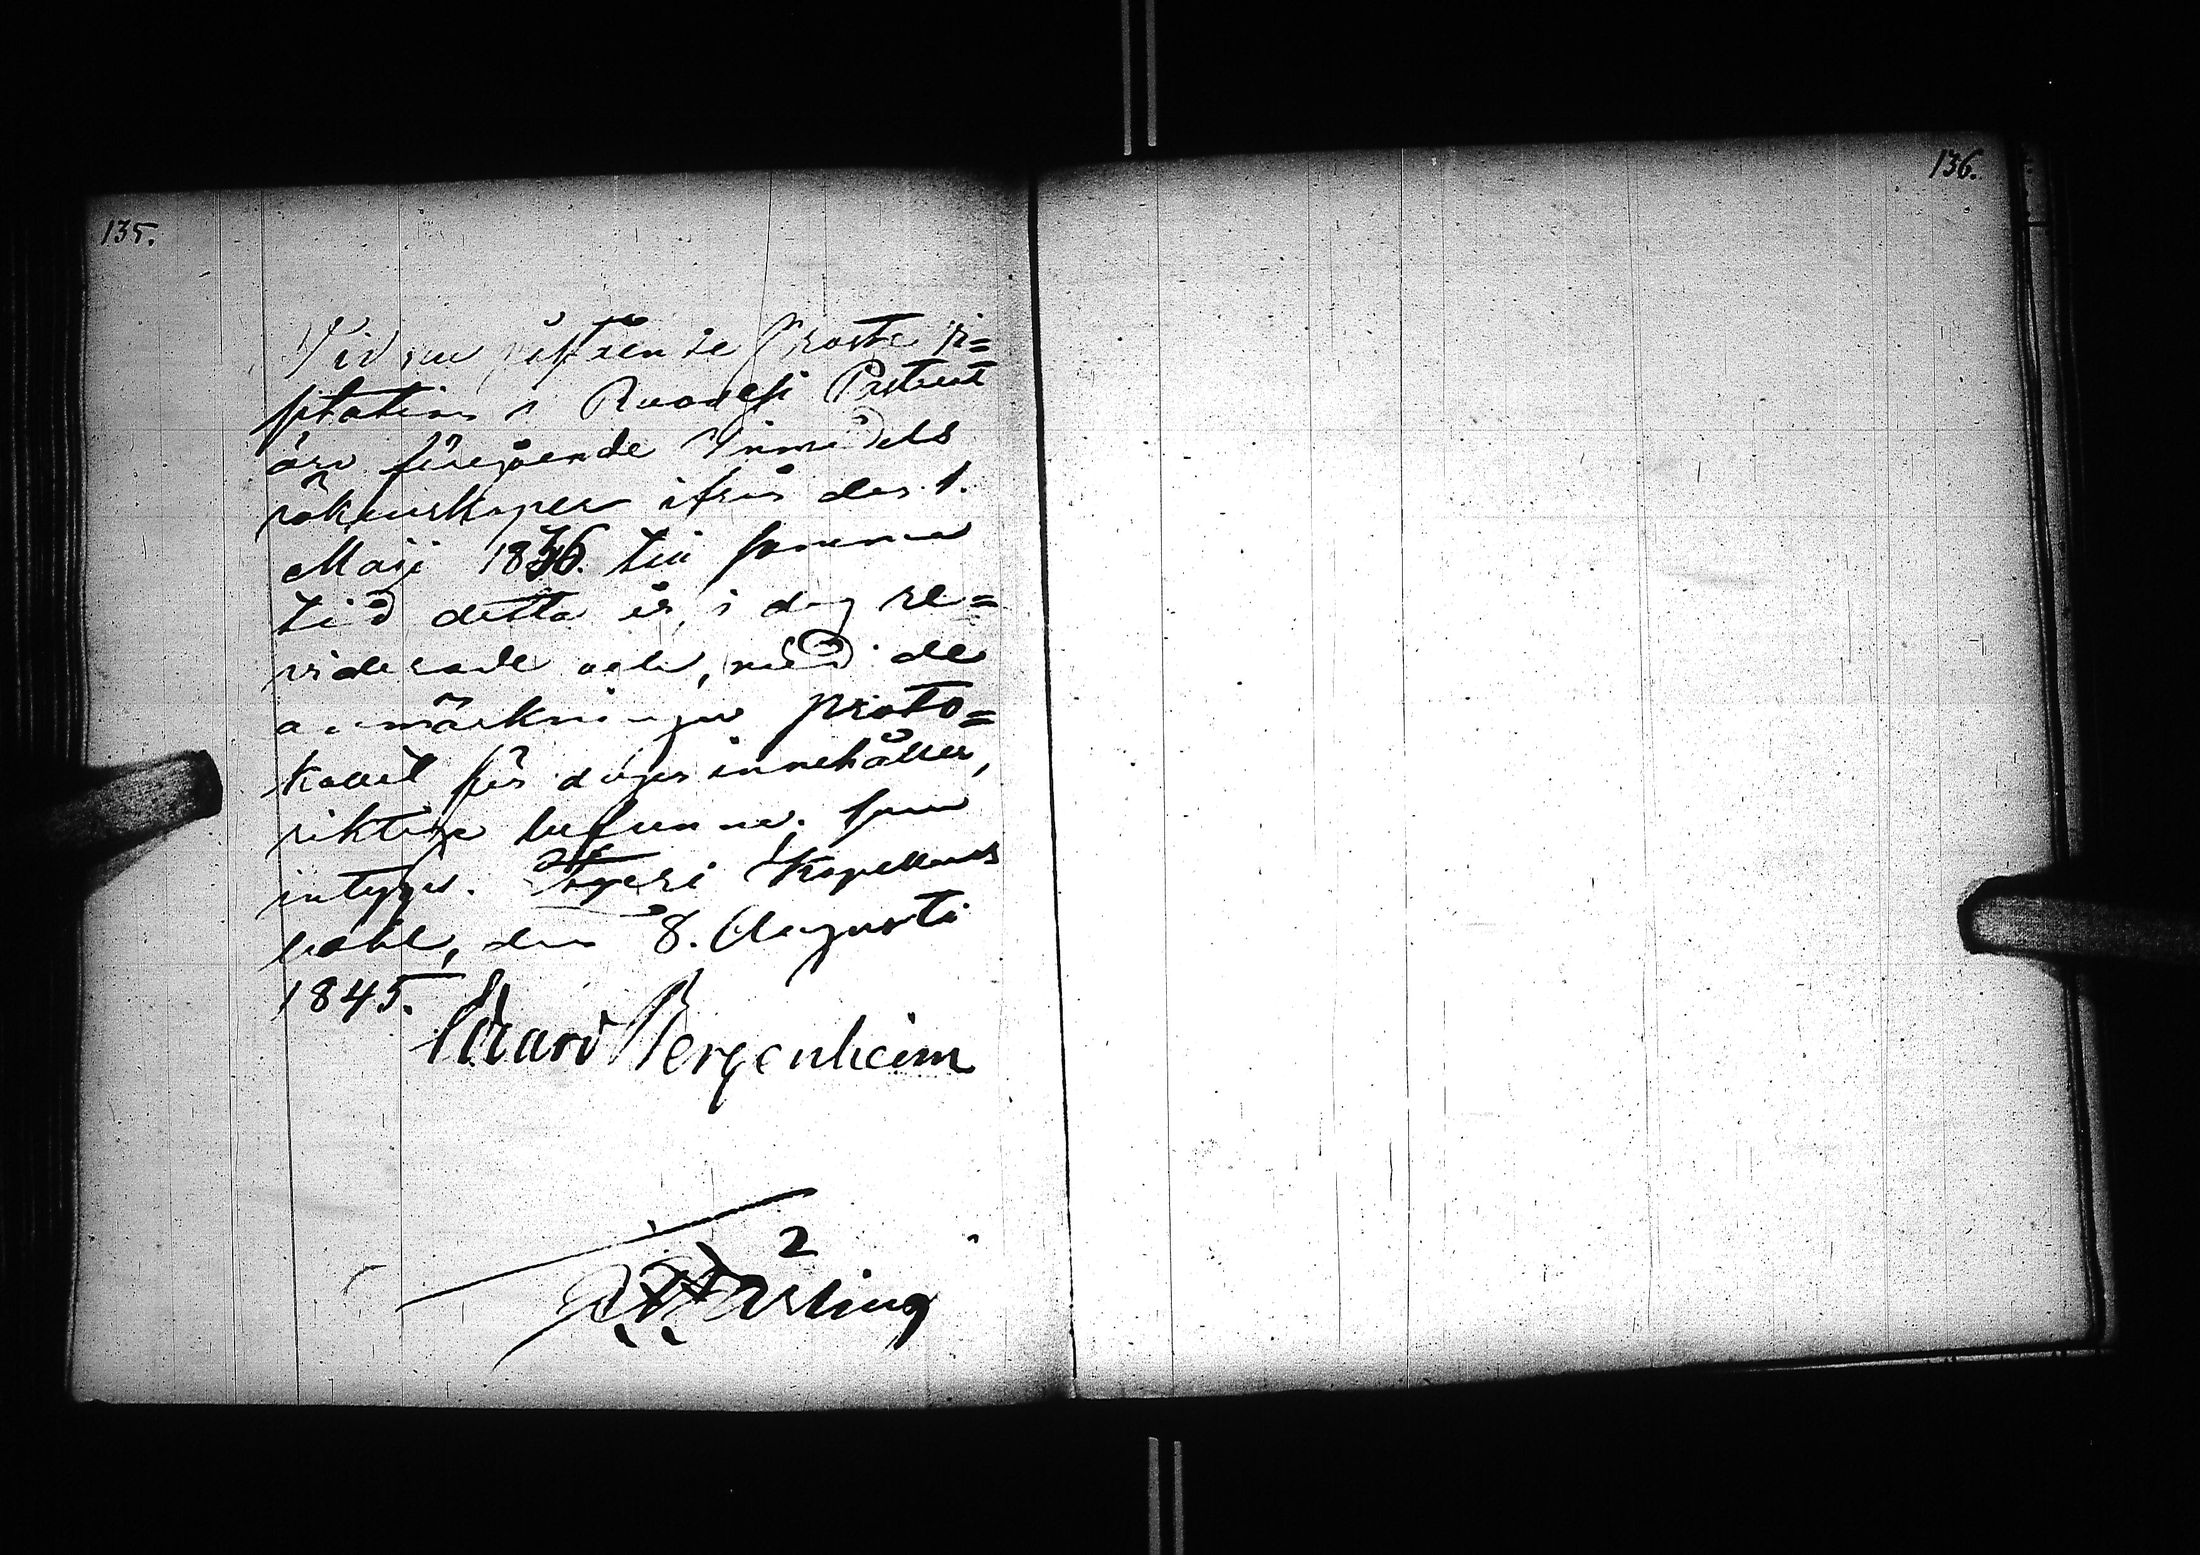 135.
Vid nu påstående Proste vi=
sitation i Ruovesi Pastorat
äro föregående Inmedels
räkenskaper ifrån den 1.
Maji 1836. till samma
tid detta år, i dag re=
viderade och, med de
anmärkningar proto=
kollet för dagen innehåller,
riktiga befunna; som
intygas. Kapellans
bohl, den 8. Augusti
1845.
Edvard Bergenheim
2
136.